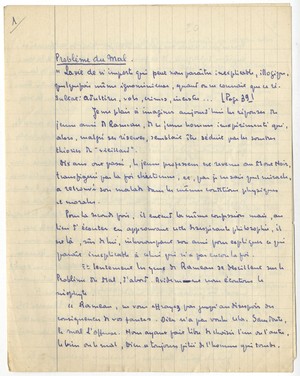 1
Problème du Mal.
"La vie de n'importe qui peut nous paraître inexplicable, illogique,
quelquefois même ignominieuse, quand on ne connaît que ce
: adultères, vols, crimes, inceste... [Page 39]
Je me plais à imaginer aujourd'hui les réponses du
jeune ami de Rameau, de ce jeune homme inopinément qui,
alors, malgré ses réserves, semblait être séduit par les sombres
théories du "vieillard".
Dix ans ont passé, le jeune professeur est revenu au
transfiguré par la foi chrétienne, et, par je ne sais quel miracle,
a retrouvé son malade dans les mêmes conditions physiques
et morales.
Pour la seconde fois, il entend la même confession mais, au
lieu d'écouter en approuvant cette désespérante philosophie, il
est là, sûr de lui, interrompant son ami pour expliquer ce qui
paraît inexplicable à celui qui n'a pas encore la foi.
Et lentement les yeux de Rameau se dessillent sur le
Problème du Mal, d'abord. Avidement nous écoutons le
néophyte
"Rameau, ne vous effrayez pas jusqu'au désespoir des
conséquences de vos fautes. Dieu n'a pas voulu cela. Sans doute,
le mal l'offense. Mais ayant fait libre de choisir l'un ou l'autre,
le bien ou le mal, Dieu a toujours pitié de l'homme qui tombe.